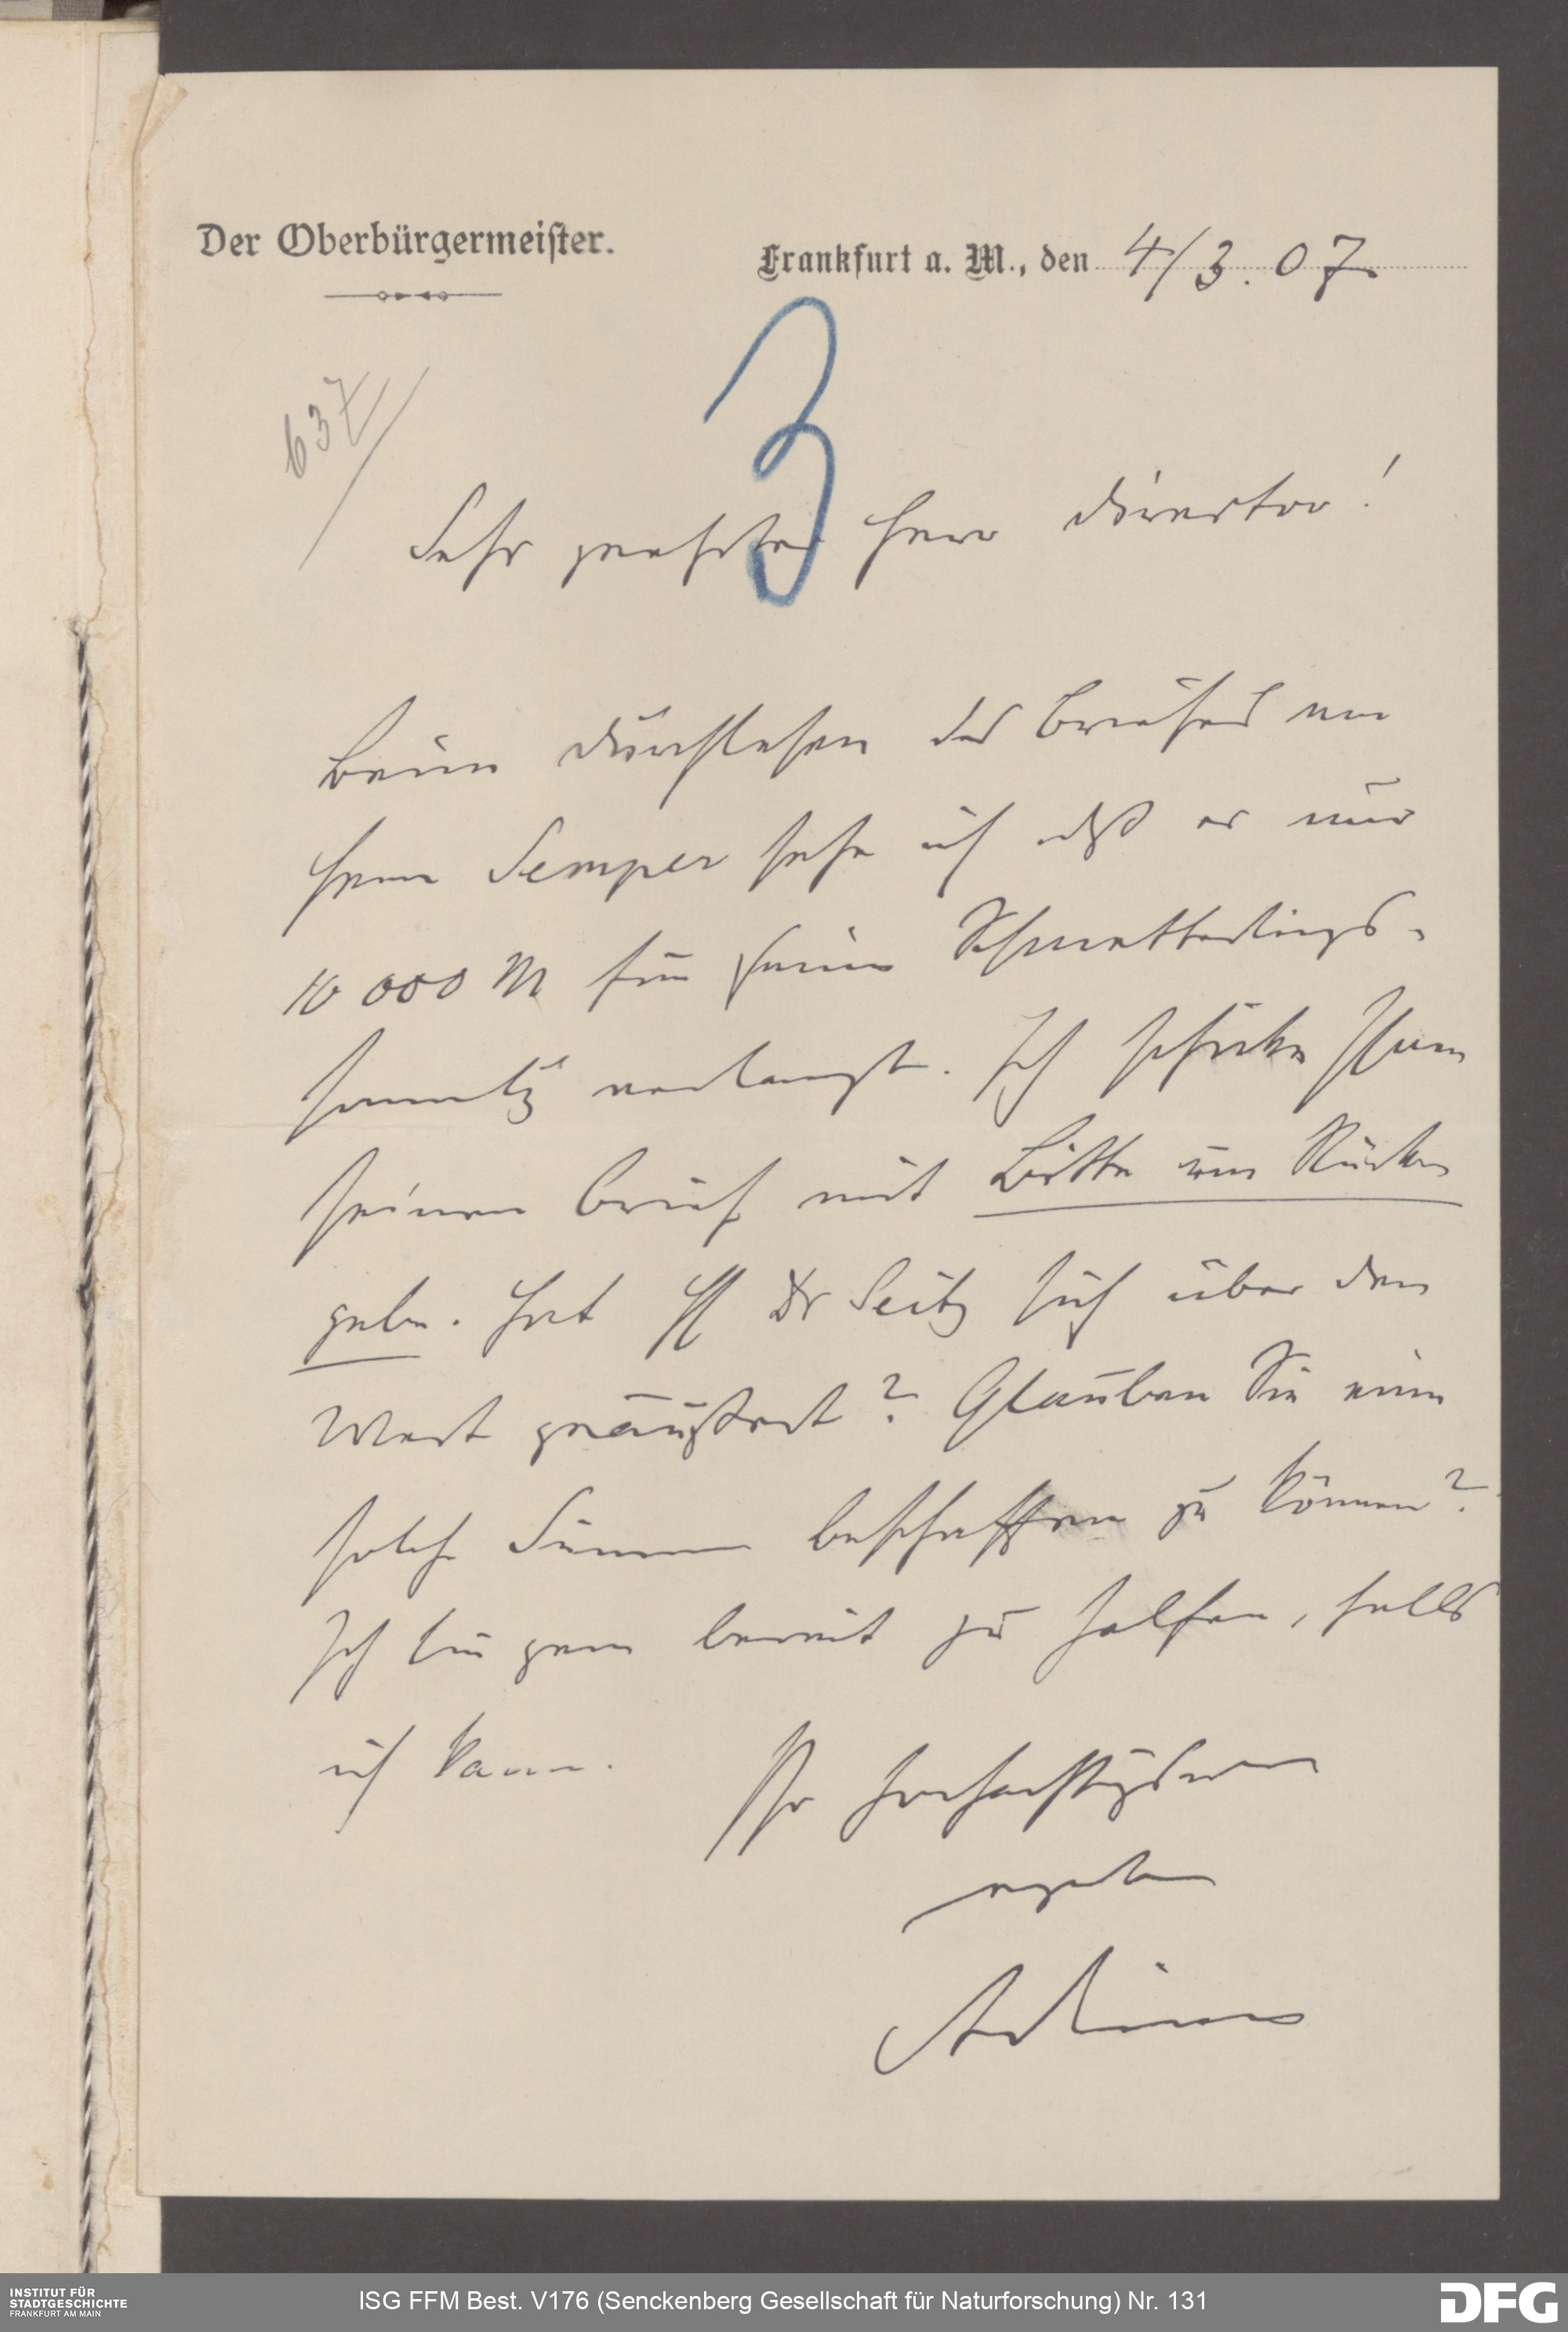 Der Oberbürgermeister.
Frankfurt a. M., den 4/3. 07.
637
3
Sehr geehrter Herr Director!
Beim Durchlesen des Briefes von
Herrn Semper sehe ich daß er nur
10 000 M für seine Schmetterlings-
sammlg verlangt. Ich schicke Ihnen
seinen Brief mit Bitte um Rück
gabe. Hat H Dr Seitz sich über den
Wert geäußert? Glauben Sie eine
solche Summe beschaffen zu können?
Ich bin gern bereit zu helfen, falls
ich kann.
Ihr hochachtungsvoll
ergebener
Adickes
INSTITUT FÜR
STADTGESCHICHTE
FRANKFURT AM MAIN
ISG FFM Best. V176 (Senckenberg Gesellschaft für Naturforschung) Nr. 131
DFG